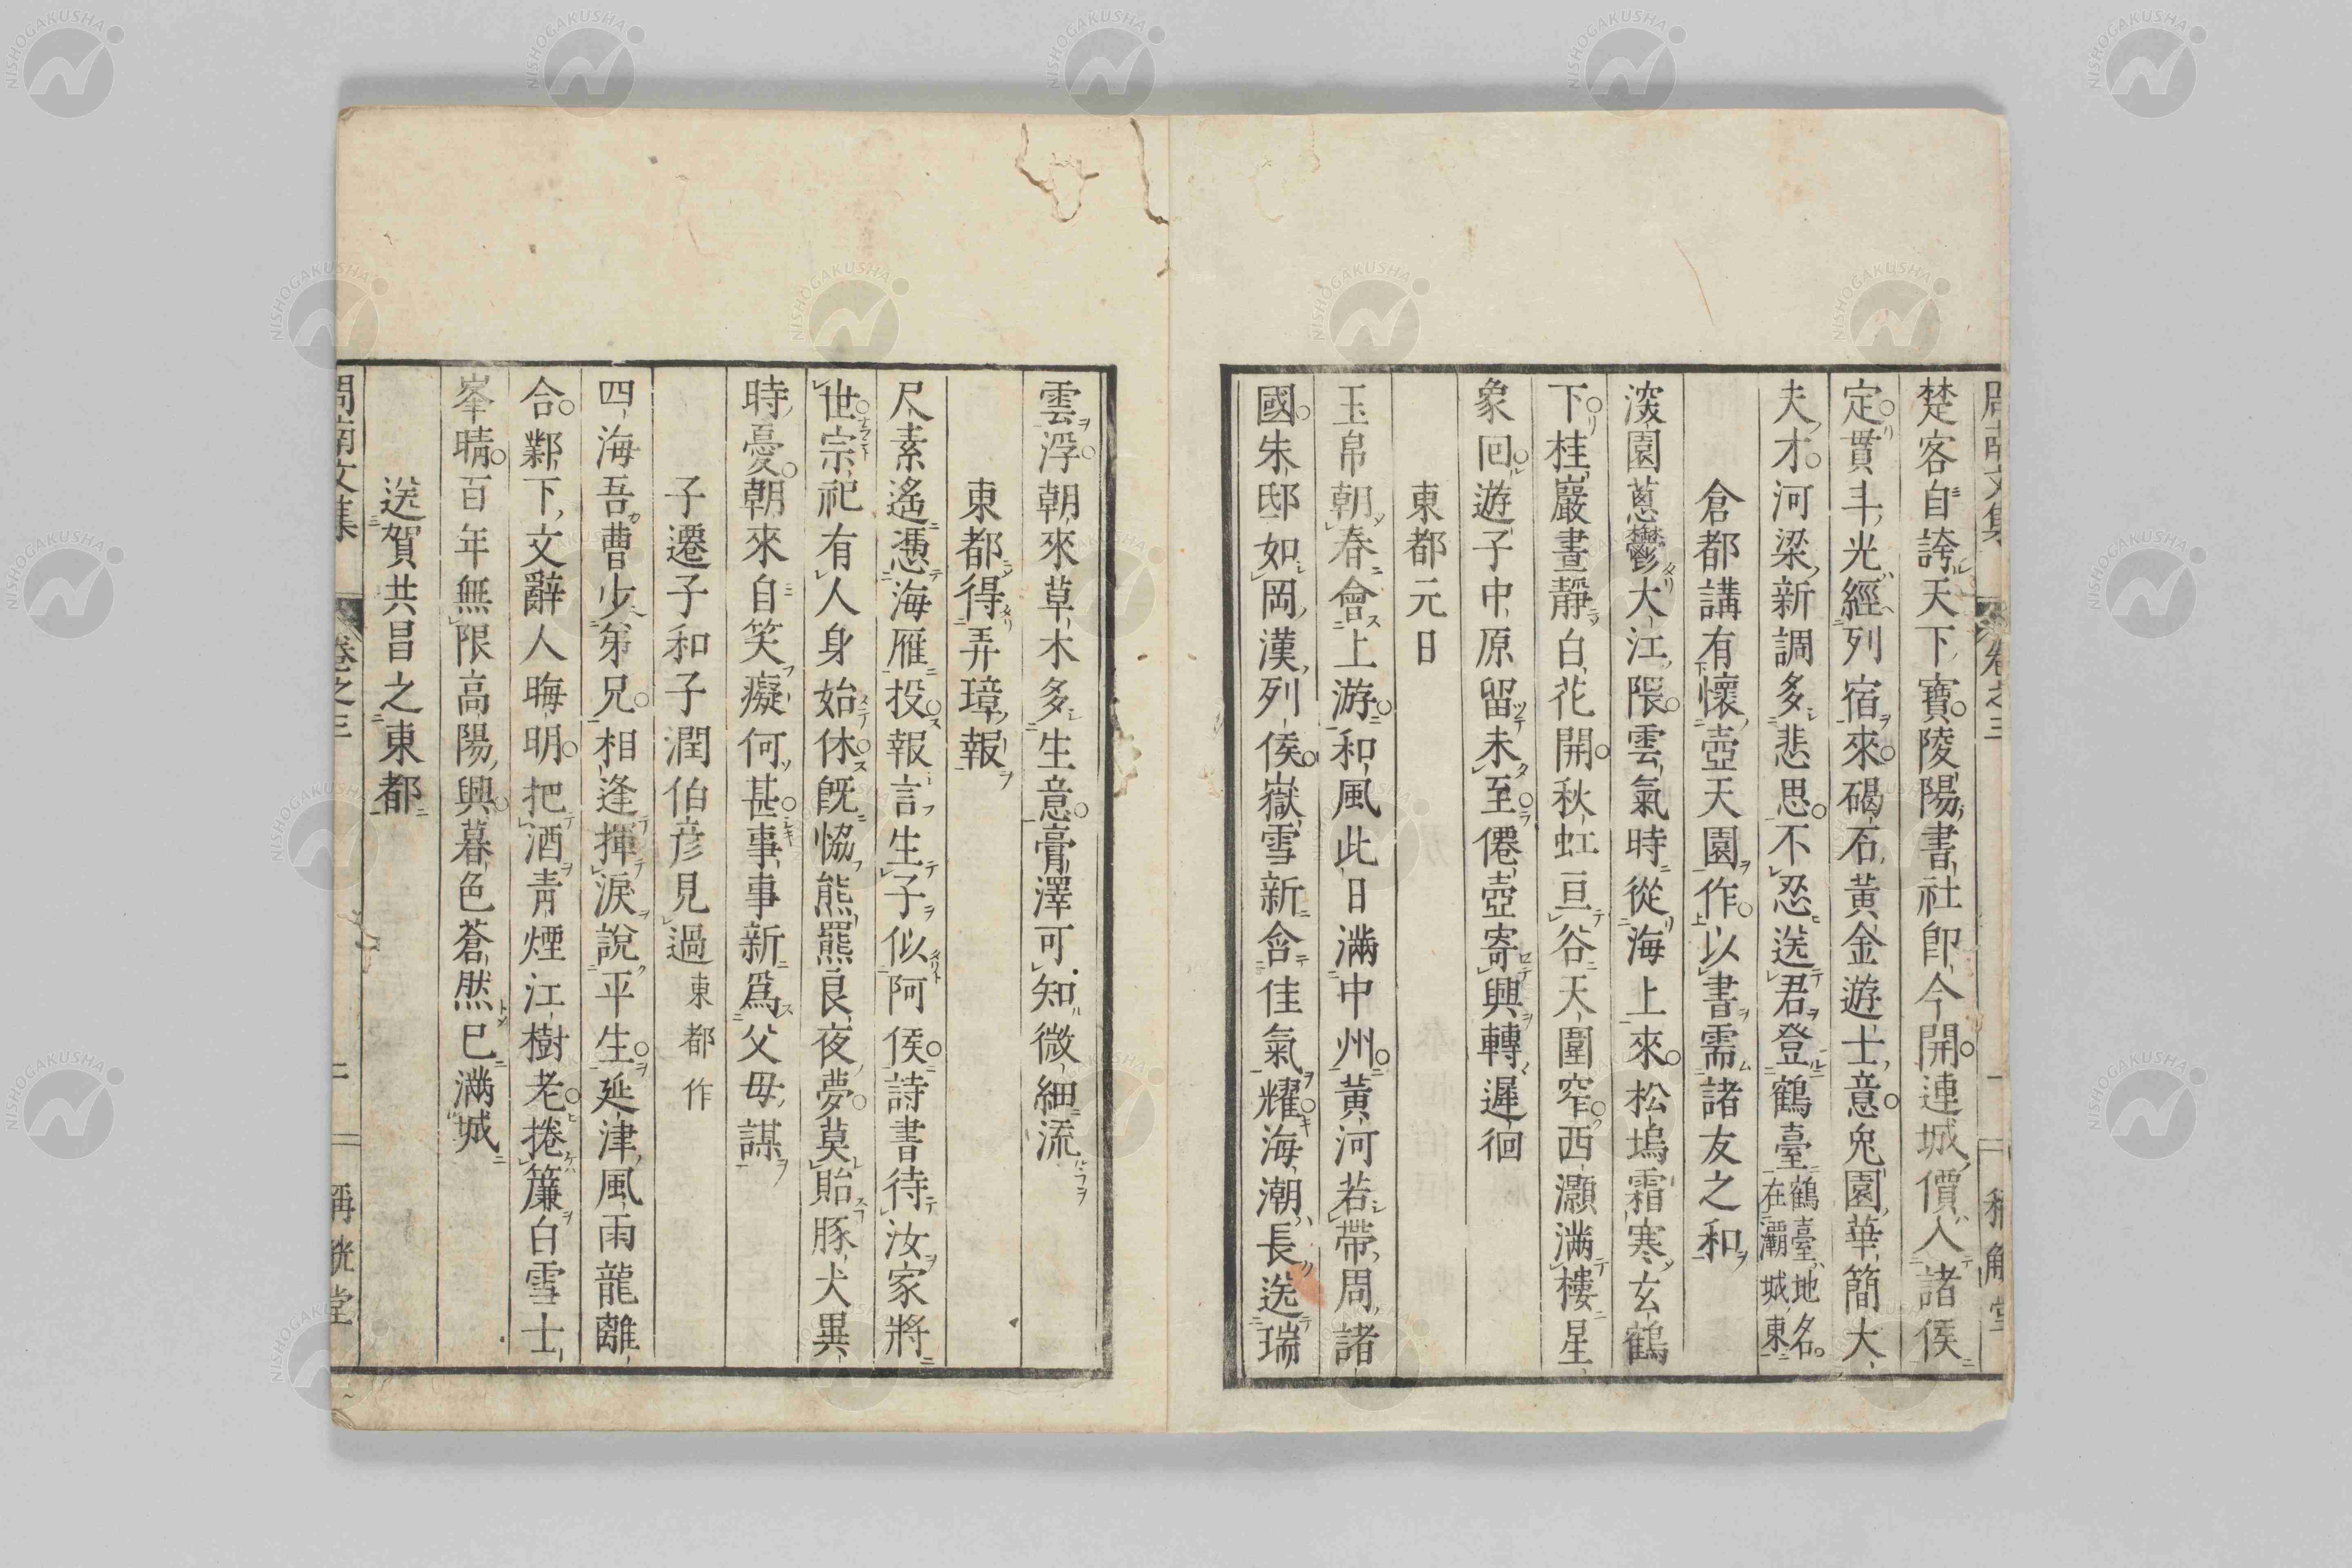 周南文集 卷之三 一 稱觥堂
楚客自誇天下寶陵陽書社卽今開連城價入諸侯
定貫斗光經列宿來碣石黃金遊士意兔園華簡大
夫才河梁新調多悲思不忍送君登鶴臺鶴臺地名在灞城東
倉都講有懷壺天園作以書需諸友之和
滾園蔥鬱大江隈雲氣時從海上來松塢霜寒玄鶴
下桂巖晝靜白花開秋虹亘谷天圍窄西灝滿樓星
象回遊子中原留未至僊壺寄興轉遲徊
東都元日
玉帛朝春會上游和風此日滿中州黃河若帶周諸
國朱邸如岡漢列侯嶽雪新含佳氣耀海潮長送瑞
雲浮朝來草木多生意膏澤可知微細流
東都得弄璋報
尺素遙憑海雁投報言生子似阿侯詩書待汝家將
世宗祀有人身始休旣恊熊羆良夜夢莫貽豚犬異
時憂朝來自笑癡何甚事事新爲父母謀
子遷子和子潤伯彥見過東都作
四海吾曹少弟兄相逢揮淚說平生延津風雨龍離
合鄴下文辭人晦明把酒靑煙江樹老捲簾白雪士
峯晴百年無限高陽興暮色蒼然已滿城
送賀共昌之東都
周南文集 卷之三 二 稱觥堂
NISHOGAKUSHA